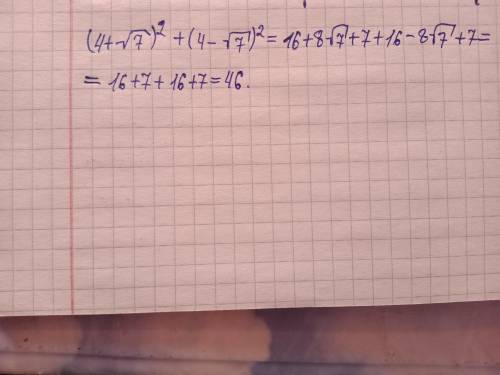 (4+√7)² + (4-√7)² = 16+8√7+7+16-8√7+7=
= 16+7+16+7=46.